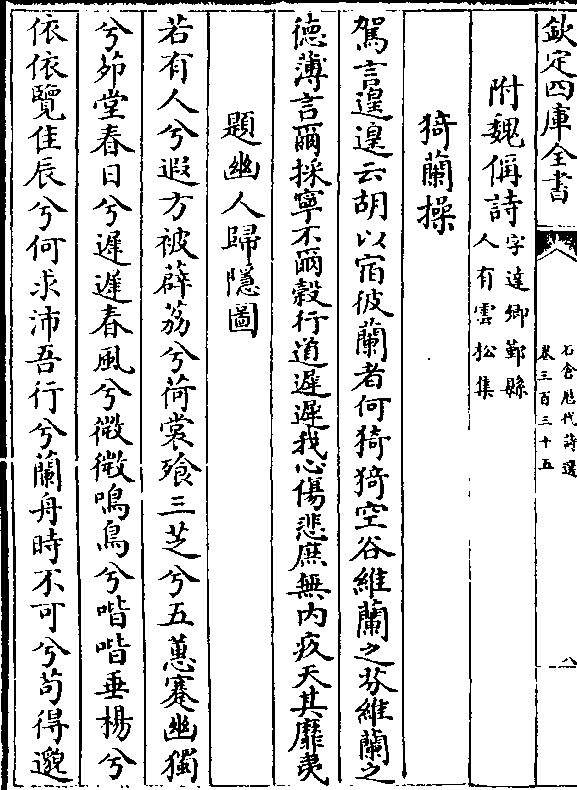 欽定四庫全書
石倉歷代詩選
卷三百三十五
八
附魏偁詩字達卿鄞縣
人有雲松集
猗蘭操
駕言遑遑云胡以宿彼蘭者何猗猗空谷維蘭之芬維蘭之
德薄言爾採寧不爾穀行道遲遲我心傷悲庶無内疚天其靡夷
題幽人歸隱圖
若有人兮遐方被薜荔兮荷裳飱三芝兮五蕙蹇幽獨
兮茆堂春日兮遲遲春風兮微微鳴鳥兮喈喈垂楊兮
依依覽佳辰兮何求沛吾行兮蘭舟時不可兮苟得邈